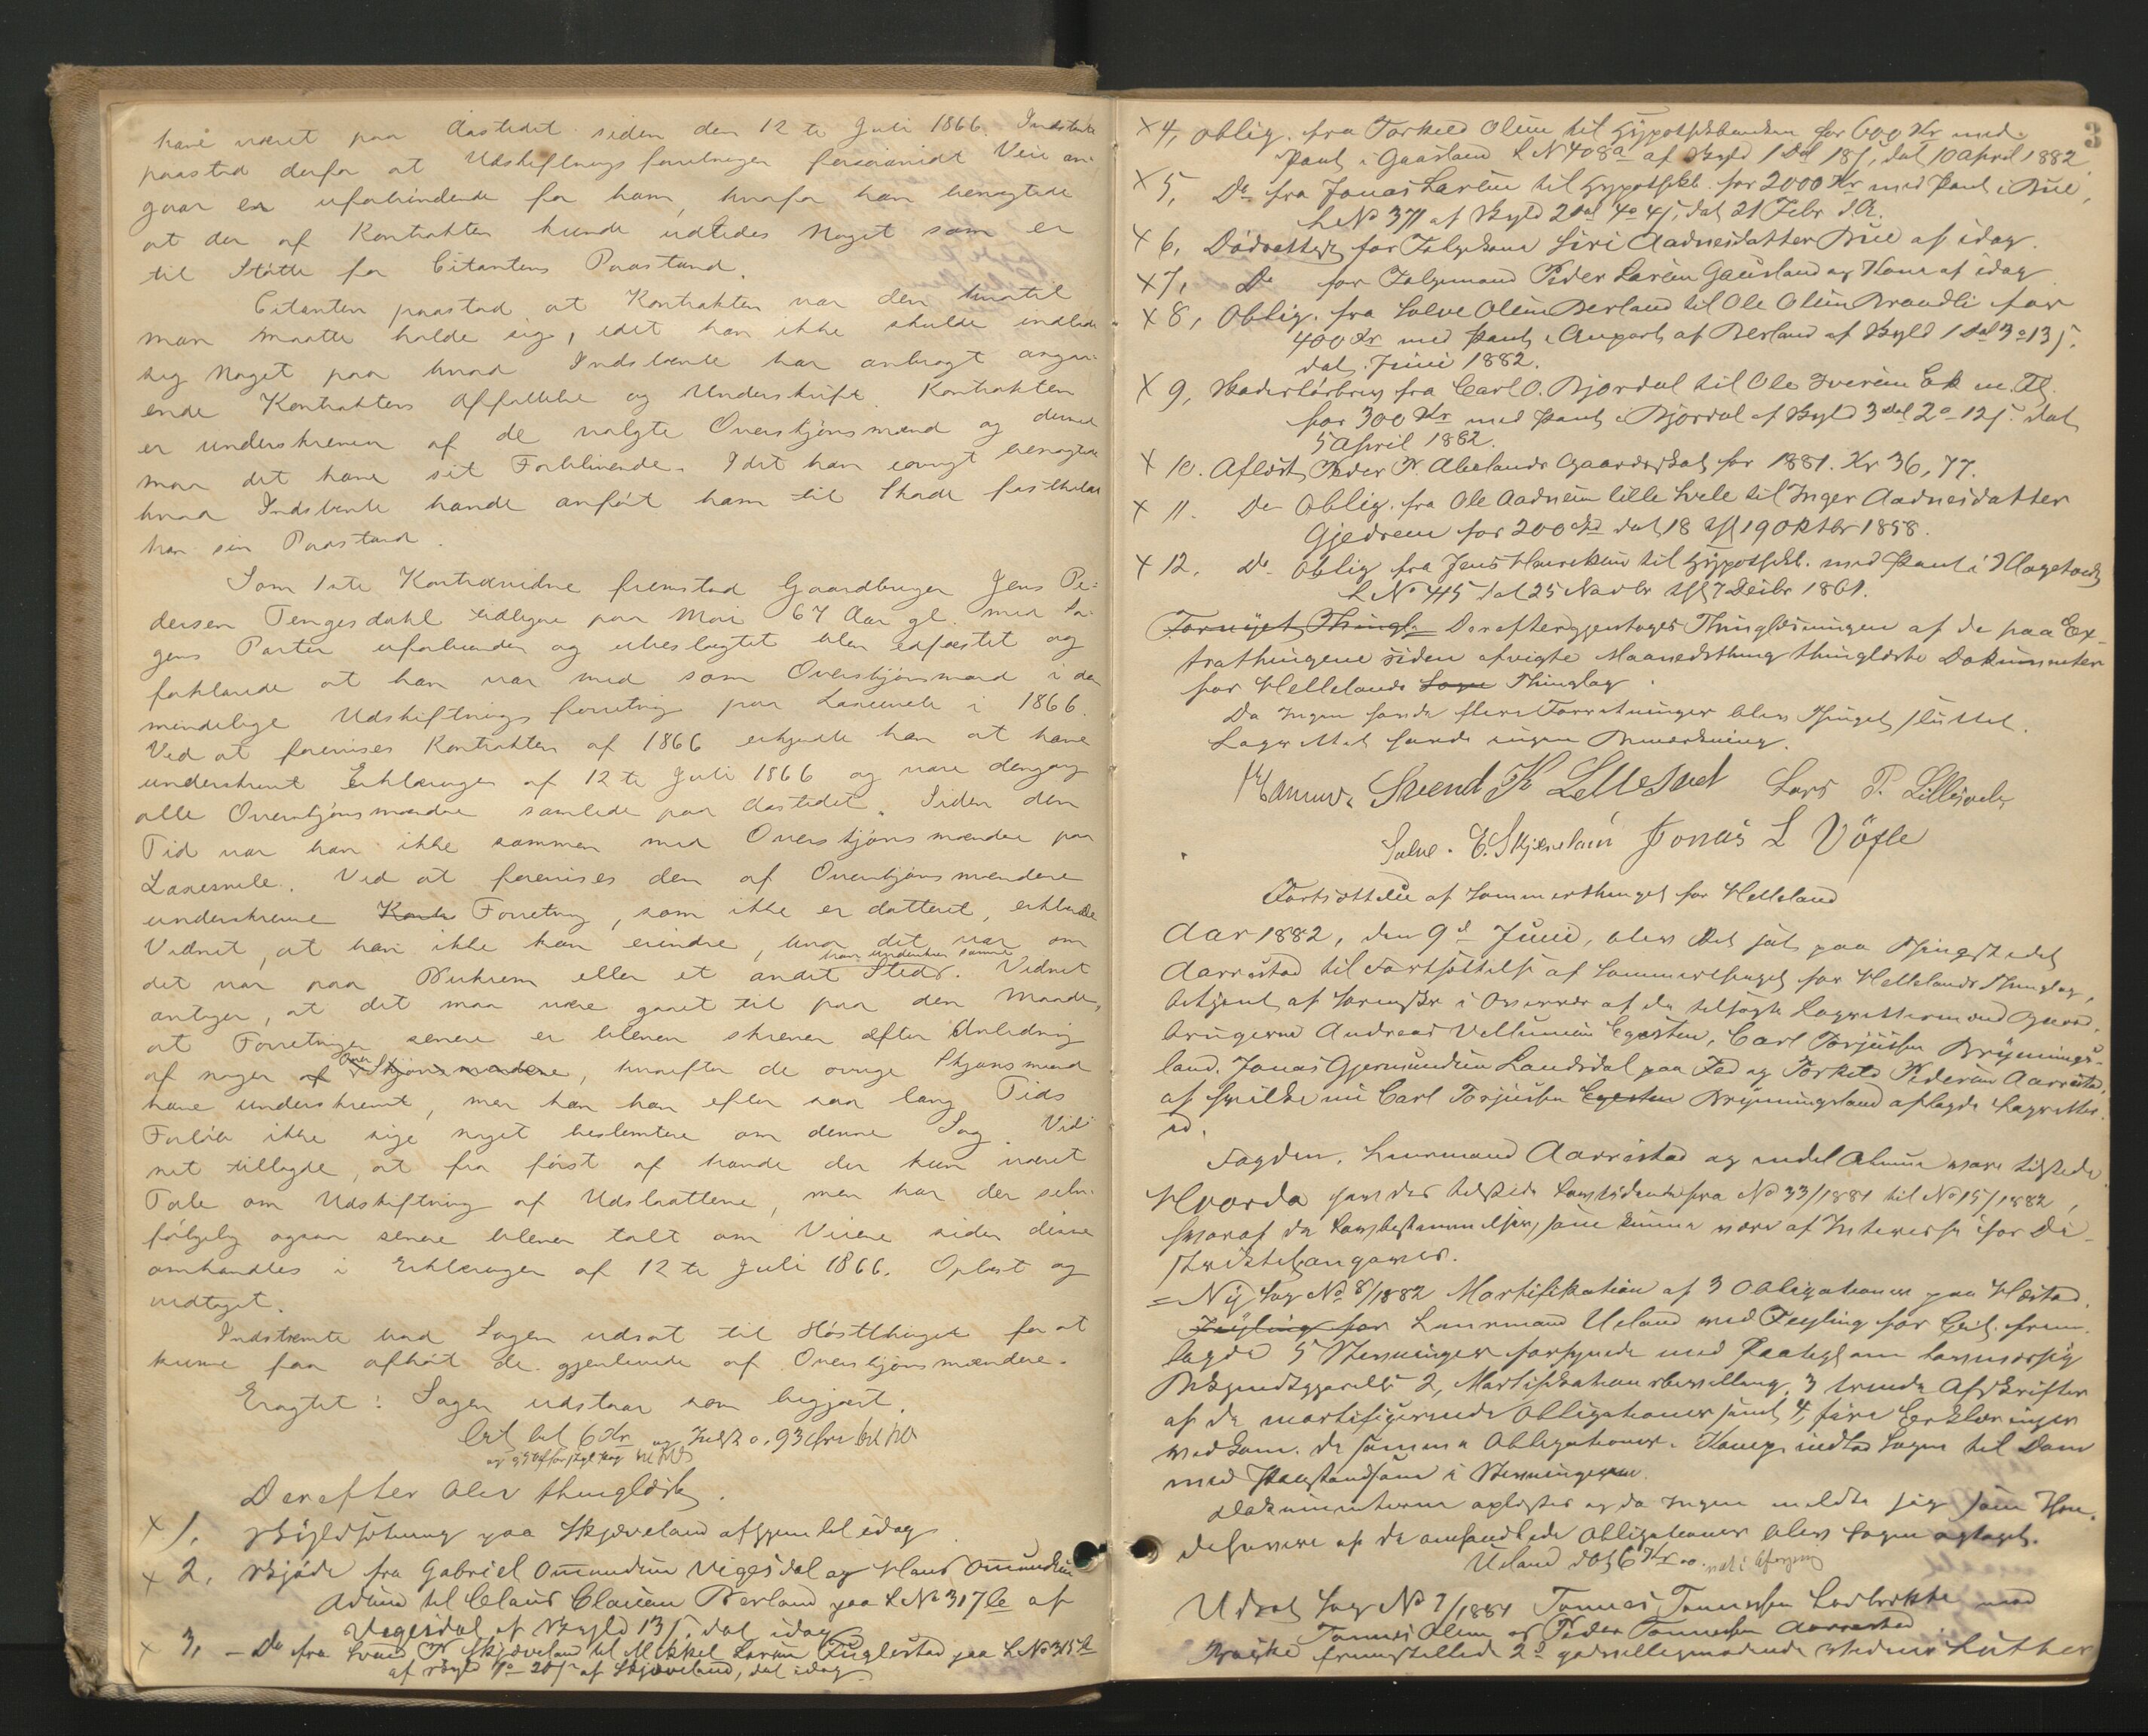 have været paa Aastedet siden den 12te Juli 1866. Indstevnte
paastod derfor at Udskiftningsforretningen forsaavidt Veie an-
gaar er uforbindende for ham, hvorfor han benegtede
at der af Kontrakten kunde udledes noget som er
til Støtte for Citantens Paastand.
Citanten paastod at Kontrakten var den hvortil
man maatte holde sig, idet han ikke skulde indlade
sig noget paa hvad Indstevnte har anbragt angaa-
ende Kontraktens Affattelse og Underskrift. Kontrakten
er underskreven af de valgte Overskjønsmænd og dermed
maa det have sit Forblivende. Idet han iøvrigt benegtede
hvad Indstevnte havde anført ham til Skade fastholdt
han sin Paastand.
Som 1ste Kontravidne fremstod Gaardbruger Jens Pe-
dersen Tengesdahl tidligere paa Moi 67 Aar gl. med Sa-
gens Parter uforbunden og ubeslægtet blev edfæstet og
forklarede at han var med som Overskjønsmand i den
mindelige Udskiftningsforretning paa Laxesvele i 1866.
Ved at forevises Kontrakten af 1866 erkjendte han at have
underskrevet Erklæringen af 12te Juli 1866 og vare dengang
alle Overskjønsmændene samlede paa Aastedet. Siden den
Tid var han ikke sammen med Overskjønsmændene paa
Laxesvele. Ved at forevises den af Overskjønsmændene
underskrevne Kont Forretning, som ikke er datteret, erklærede
Vidnet, at han ikke kan erindre, hvor det var om
han underskrev samme
det var paa Birkrem eller et andet Sted. Vidnet
antager, at det maa være gaaet til paa den Maade,
at Forretningen senere er bleven skreven efter Anledning
af nogen af Overskjønsmændene, hvorefter de øvrige Skjønsmænd
have underskrevet, men han kan efter saa lang Tids
Forløb ikke sige noget bestemtere om denne Sag. Vid-
net tillagde, at fra først af havde der kun været
Tale om Udskiftning af Udslaatterne, men har der selv-
følgelig ogsaa senere bleven talt om Veiene siden disse
omhandles i Erklæringen af 12te Juli 1866. Oplæst og
vedtaget.
Indstevnte bad Sagen udsat til Høstthinget for at
kunne faa afhørt de gjenlevende af Overskjønsmændene.
Eragtet: Sagen udstaar som begjært.
Cit bet 6 Kr og Indst 0,93
Derefter blev thinglæst.
x 1. Skyldsætning paa Skjæveland afhjemlet idag.
x 2. Skjøde fra Gabriel Omundsen Vigesdal og Hans Omundsen
Adsen til Claus Clausen Berland paa L No 317 b af
Vigesdal af Skyld 13 s. dat idag
x 3, - Do fra Svend P Skjæveland til Mikkel Larsen Fuglestad paa L No 315 b
af Skyld 1 o 20 s af Skjæveland, dat idag
3
x 4, Oblig. fra Torkild Olsen til Hypothekbanken for 600 Kr med
Pant i Gaasland L N 408a af Skyld 1 Dal 18 s, dat 10 April 1882.
x 5, Do fra Jonas Larsen til Hypothekb. for 2000 Kr med Pant i Bue,
L No 377 af Skyld 2 Dal 4 o 4 s, dat 21 Febr d.A.
x 6, Dødsattest for Folgekone Siri Aadnesdatter Bue af idag.
x 7, Do for Folgemand Peder Larsen Gausland og Kone af idag
x 8, Oblig. fra Salve Olsen Berland til Ole Olsen Braadli for
400 Kr med Pant i Anpart af Berland af Skyld 1 Dal 3 o 13 s.
dat Juni 1882.
x 9, Skadesløsbrev fra Carl O. Bjordal til Ole Iversen Ek m. Fl.
for 300 Kr med Pant i Bjordal af Skyld 3 Dal 2 o 12 s. dat
5 April 1882.
x 10. Aflæst Peder P. Abelands Gaardsskat for 1881. Kr 36,77.
x 11. Do Oblig. fra Ole Aadnesen lille Svele til Inger Aadnesdatter
Gjedrem for 200 Spd dat 18 thgl 19 Oktbr 1858.
x 12. Do Oblig fra Jens Hansen til Hypothekb. med Pant i Hagetvedt
L No 45 dat 25 Novbr thgl 7 Decbr 1861.
Fornyet Thingl. Derefter gjentoges Thinglæsningen af de paa Ex-
trathingene siden afvigte Maanedsthing thinglæste Dokumenter
for Hellelands Sogn Thinglag.
Da Ingen havde flere Forretninger blev Thinget sluttet.
Lagrettet havde ingen Bemærkning.
Svend K Lillesvel Lars P. Lillesvele
Salve E. Skjævelan Jonas L Vøfle
Fortsættelse af Sommerthinget for Helleland
Aar 1882, den 9d Juni, blev Ret sat paa Thingstedet
Aarrestad til Fortsættelse af Sommerthinget for Hellelands Thinglag,
betjent af Sorenskr i Overvær af de tilsagte Lagrettesmænd Gaard-
brugerne Andreas Vellumsen Egesten, Carl Torjussen Brynnings-
land, Jonas Gjermundsen Landsdal paa Fed og Torkild Pedersen Aarrestad,
af hvilke nu Carl Torjussen Egesten Brynningsland aflagde Lagrettes-
ed.
Fogden, Lensmand Aarrestad og endel Almue vare tilstede.
Hvorda var der tilstede Lovtidende fra No 33/1881 til No 15/1882,
hvoraf de Lovbestemmelser, som kunne være af Interesse for Di-
striktet angaves.
= Ny Sag No 8/1882 Mortifikation af 3 Obligationer paa Hæstad.
Feyling for Lensmand Ueland med Feyling for Cit. frem-
lagde 5 Stevninger forsynede med Paategn om lovmæssig
Bekjendtgjørelse 2, Mortifikationsbevilling, 3 trende Afskrifter
af de mortificerende Obligationer samt 4, fire Erklæringer
vedkom. de samme Obligationer. Komp. indlod Sagen til Dom
med Paastand som i Stevningerne.
Dokumenterne oplæstes og da Ingen meldte sig som Ihæn-
dehavere af de omhandlede Obligationer blev Sagen optaget.
Ueland bet 6 Kr
Udsat Sag No 7/1881 Tønnes Tønnessen Ladbrekke mod
Tønnes Olsen og Peder Tønnessen Aarrestad
fremstillede 2de godvilligmødende Vidner Luther